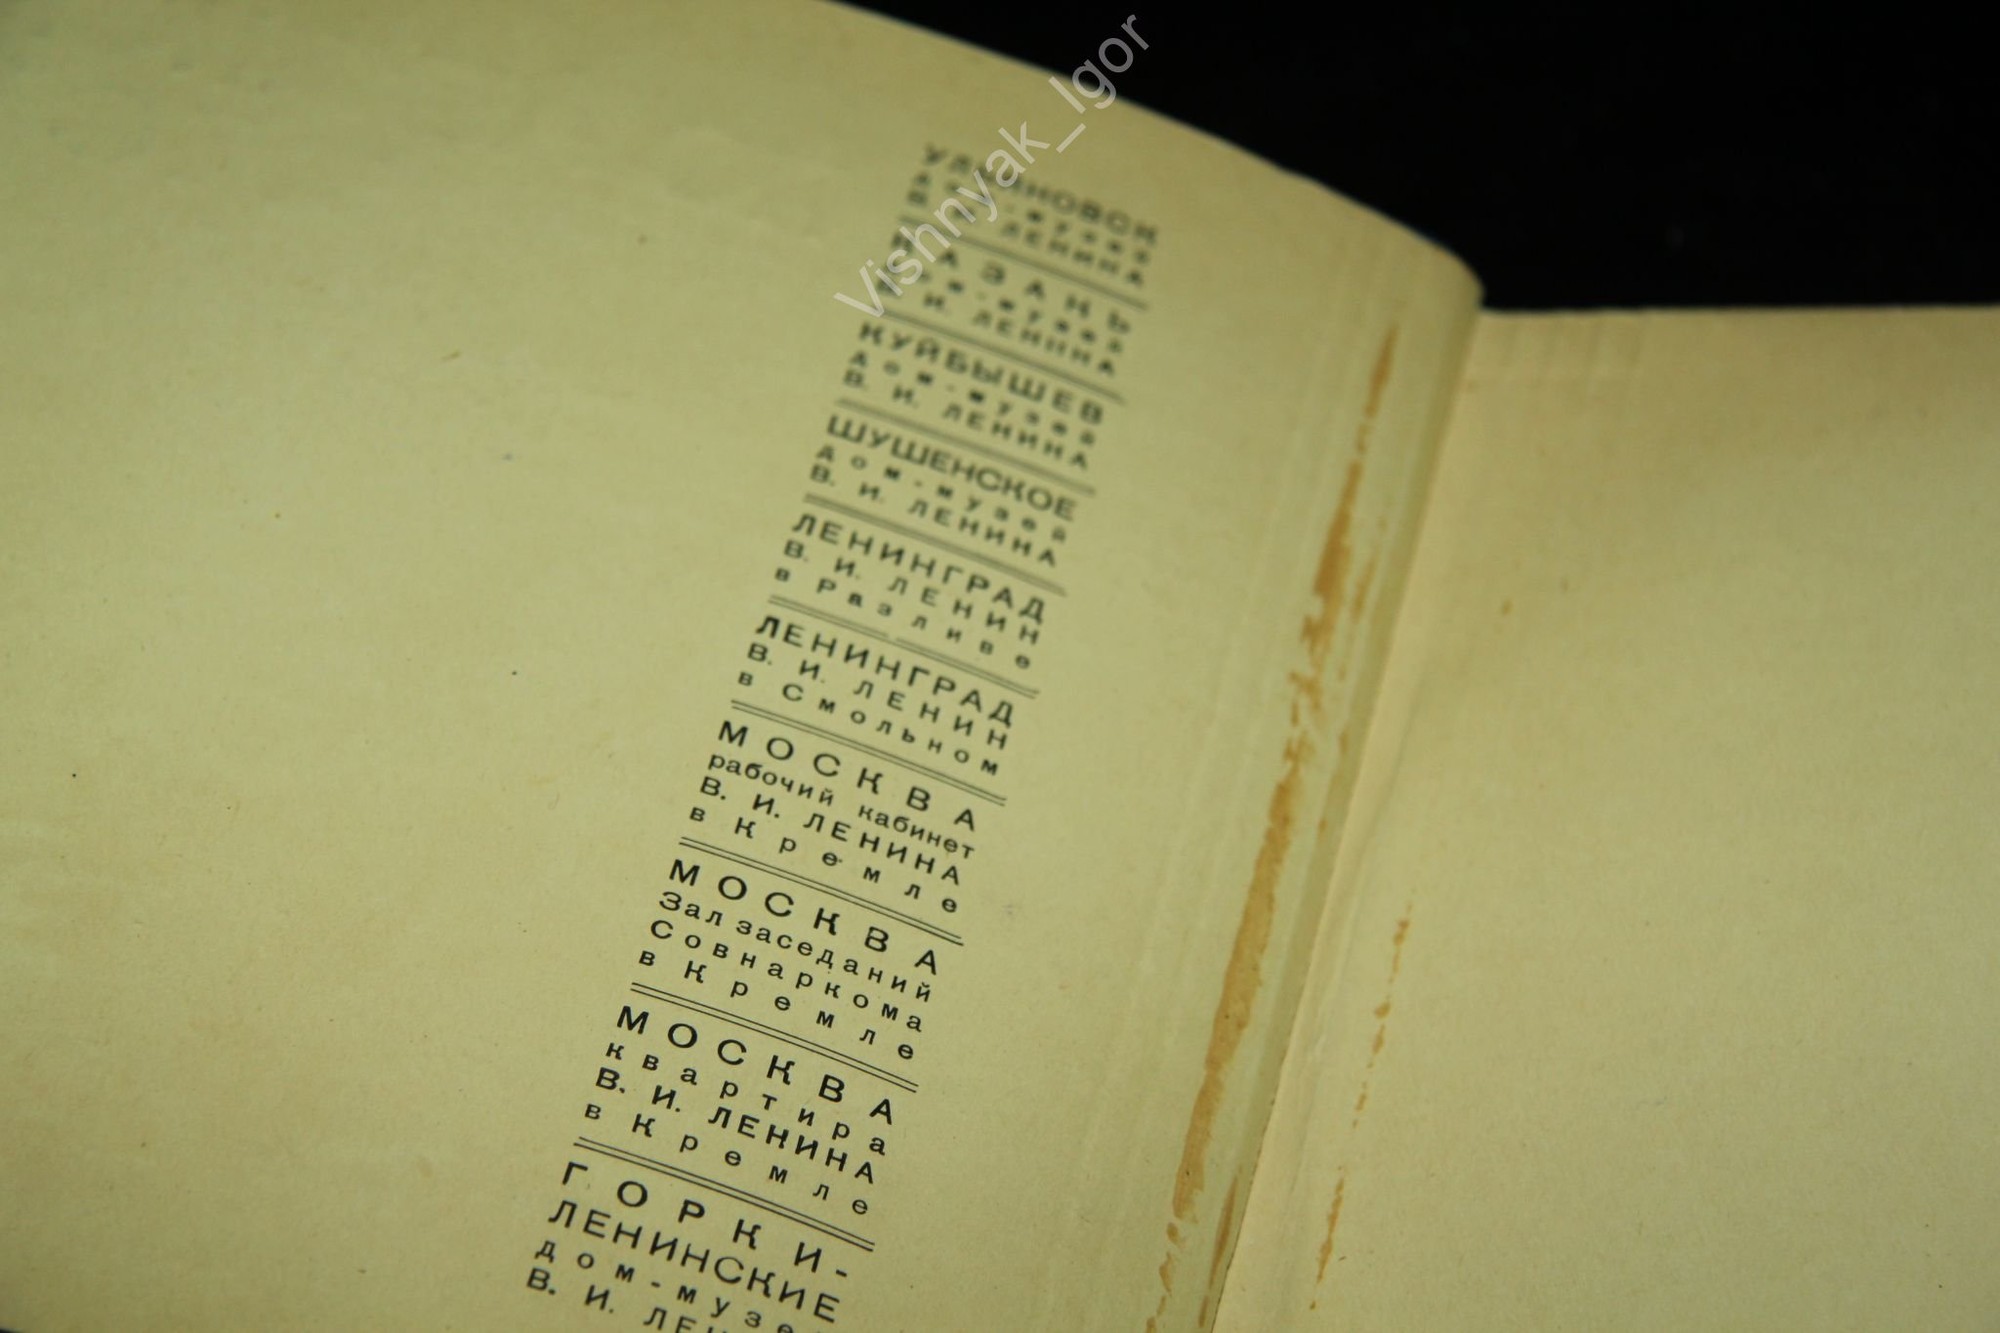 Vishnyak_Igor
УЛЬЯНОВСК
дом-музей
В. И. ЛЕНИНА
КАЗАНЬ
дом-музей
В. И. ЛЕНИНА
КУЙБЫШЕВ
дом-музей
В. И. ЛЕНИНА
ШУШЕНСКОЕ
дом-музей
В. И. ЛЕНИНА
ЛЕНИНГРАД
В. И. ЛЕНИН
в разливе
ЛЕНИНГРАД
В. И. ЛЕНИН
в Смольном
МОСКВА
рабочий кабинет
В. И. ЛЕНИНА
в Кремле
МОСКВА
Зал заседаний
Совнаркома
в Кремле
МОСКВА
квартира
В. И. ЛЕНИНА
в Кремле
ГОРКИ-
ЛЕНИНСКИЕ
дом-музе
В. И. ЛЕ